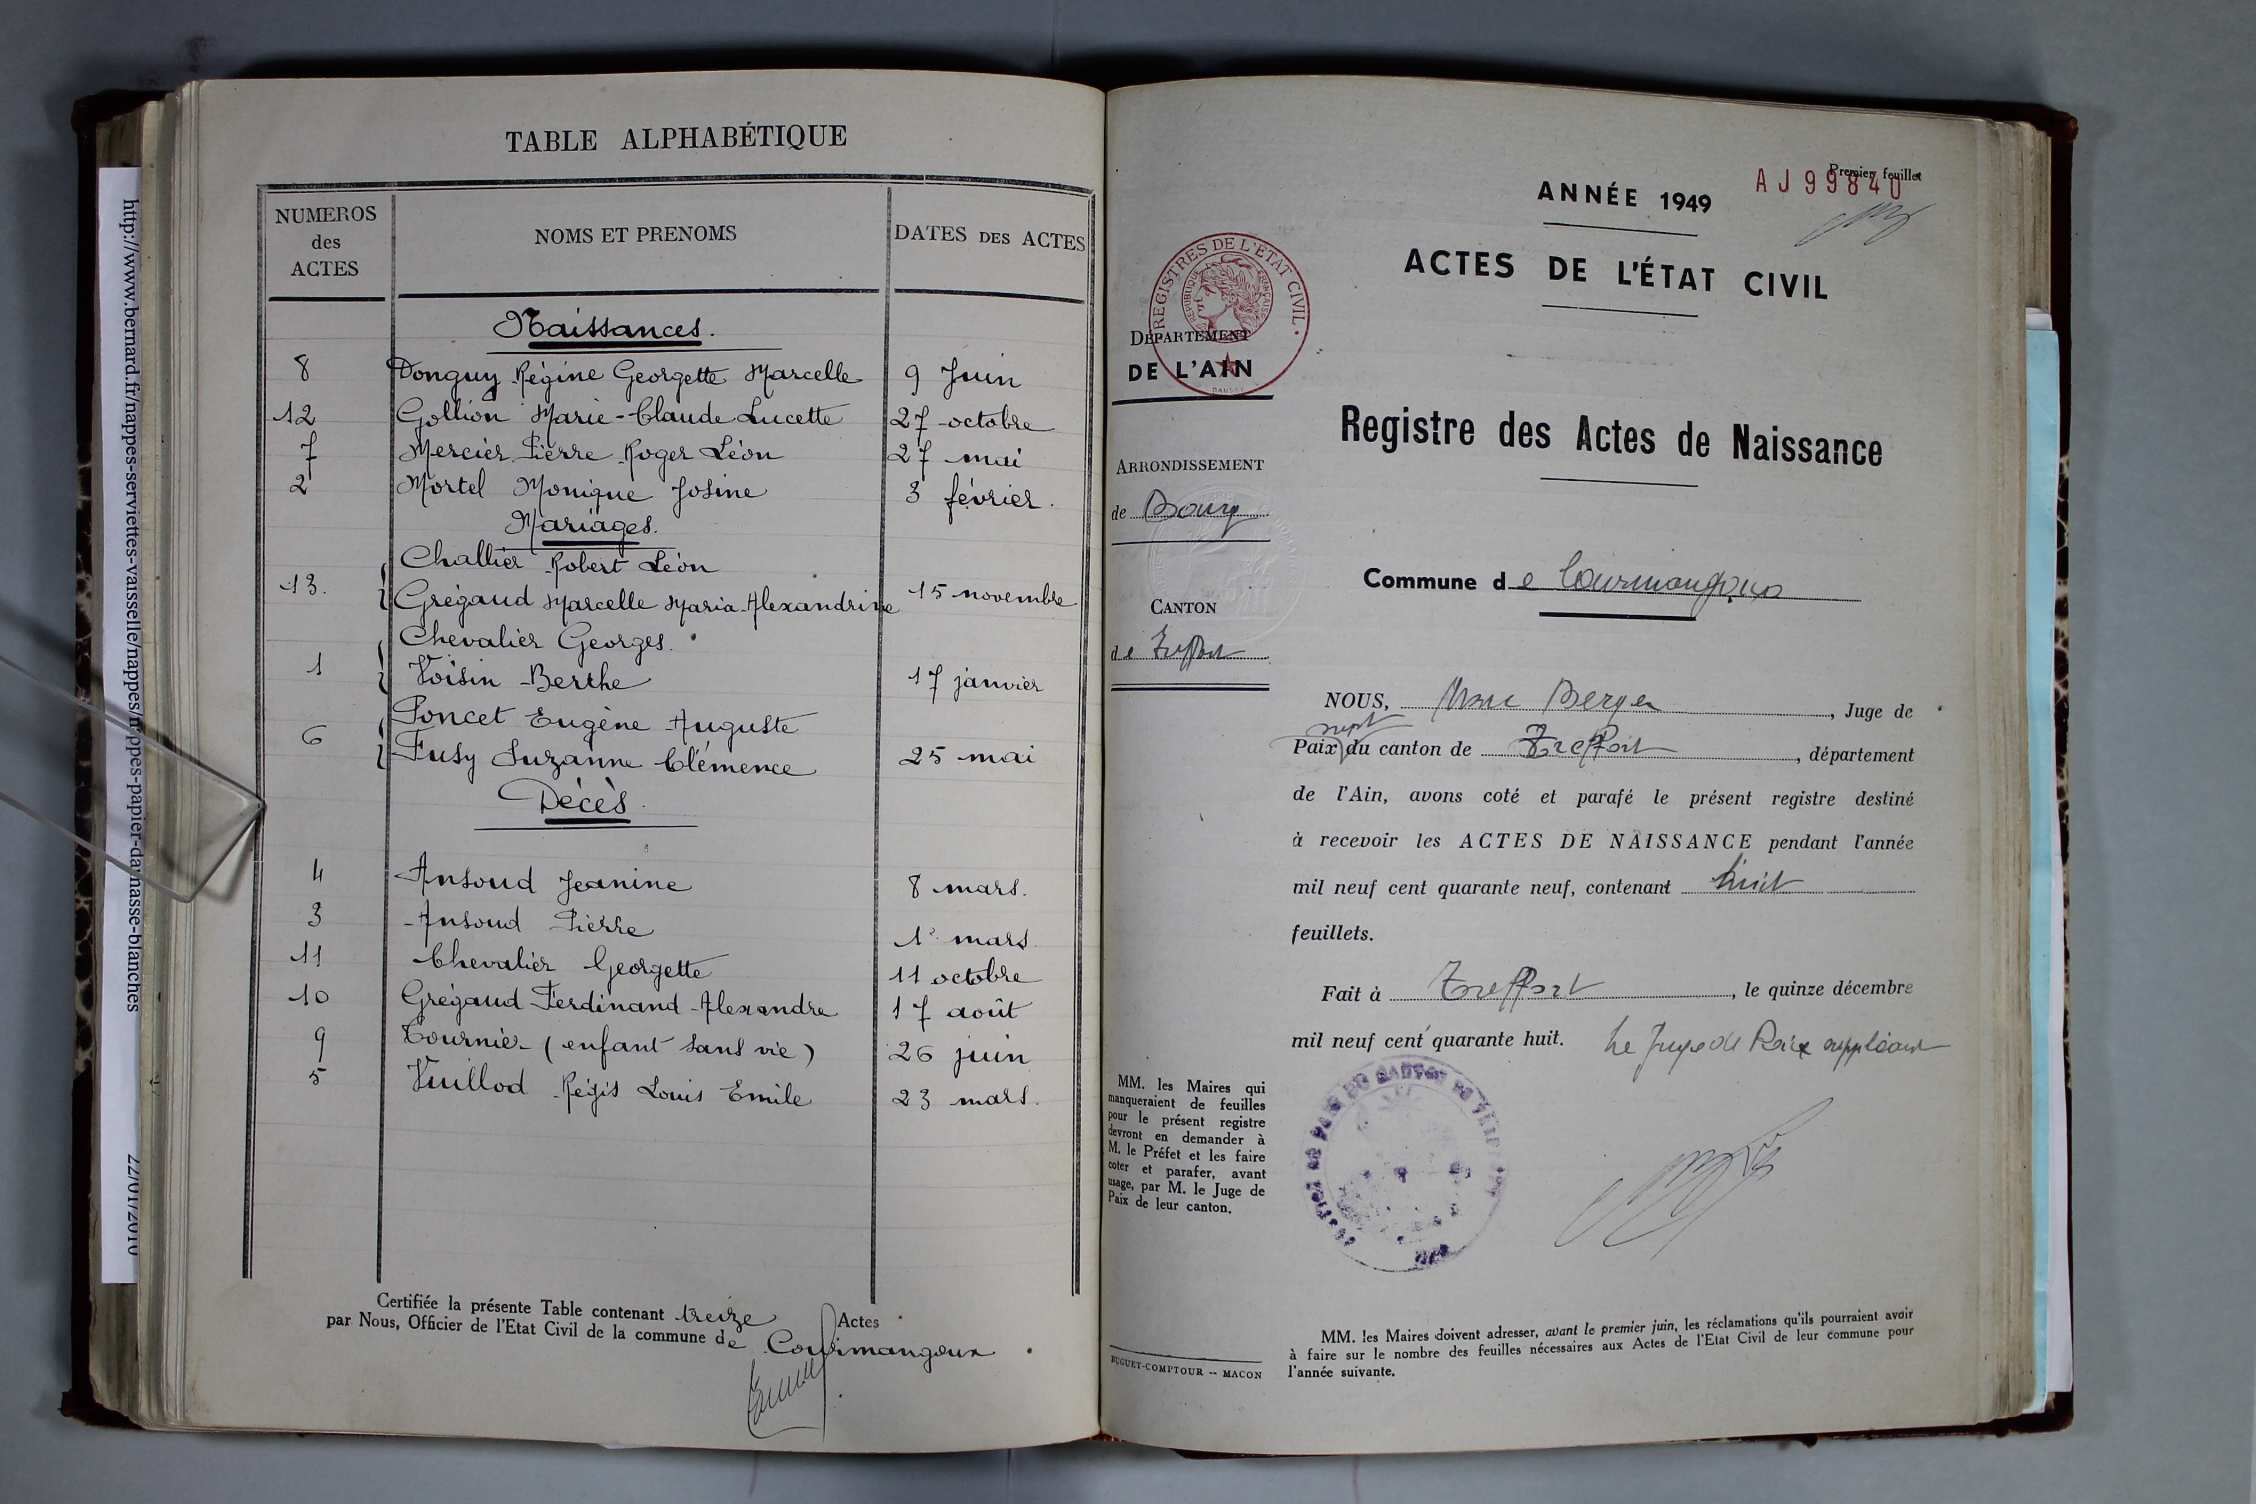 TABLE ALPHABÉTIQUE
NUMEROS des ACTES NOMS ET PRENOMS DATES DES ACTES
Naissances.
8 Donguy Régine Georgette Marcelle 9 Juin
12 Gollion Marie-Claude Lucette 27 octobre
7 Mercier Pierre Roger Léon 27 mai
2 Mortel Monique Josine 3 février.
Mariages.
Challier Robert Léon
13. Grégaud Marcelle Maria Alexandrine 15 novembre
Chevalier Georges.
1 Voisin Berthe 17 janvier
Poncet Eugène Auguste
6 Fusy Suzanne Clémence 25 mai
Décès.
4 Ansoud Jeanine 8 mars.
3 Ansoud Pierre 1er mars
11 Chevalier Georgette 11 octobre
10 Grégaud Ferdinand Alexandre 17 août
9 Tournier (enfant sans vie) 26 juin
5 Vuillod Régis Louis Emile 23 mars.
Certifiée la présente Table contenant treize Actes
par Nous, Officier de l'Etat Civil de la commune de Courmangoux
http://www.bernard.fr/nappes-serviettes-vaisselle/nappes/nappes-papier-damasse-blanches
22/01/2010
Premier feuillet
AJ99840
ANNÉE 1949
ACTES DE L'ÉTAT CIVIL
REGISTRES DE L'ÉTAT CIVIL
RÉPUBLIQUE FRANÇAISE
DÉPARTEMENT
DE L'AIN
Registre des Actes de Naissance
ARRONDISSEMENT
de Bourg
Commune de Courmangoux
CANTON
de Treffort
NOUS, Marc Berger, Juge de
supt
Paix du canton de Treffort, département
de l'Ain, avons coté et parafé le présent registre destiné
à recevoir les ACTES DE NAISSANCE pendant l'année
mil neuf cent quarante neuf, contenant huit
feuillets.
Fait à Treffort, le quinze décembre
mil neuf cent quarante huit. Le Juge de Paix suppléant
MM. les Maires qui
manqueraient de feuilles
pour le présent registre
devront en demander à
M. le Préfet et les faire
coter et parafer, avant
usage, par M. le Juge de
Paix de leur canton.
BUGUET-COMPTOUR -- MACON
MM. les Maires doivent adresser, avant le premier juin, les réclamations qu'ils pourraient avoir
à faire sur le nombre des feuilles nécessaires aux Actes de l'Etat Civil de leur commune pour
l'année suivante.